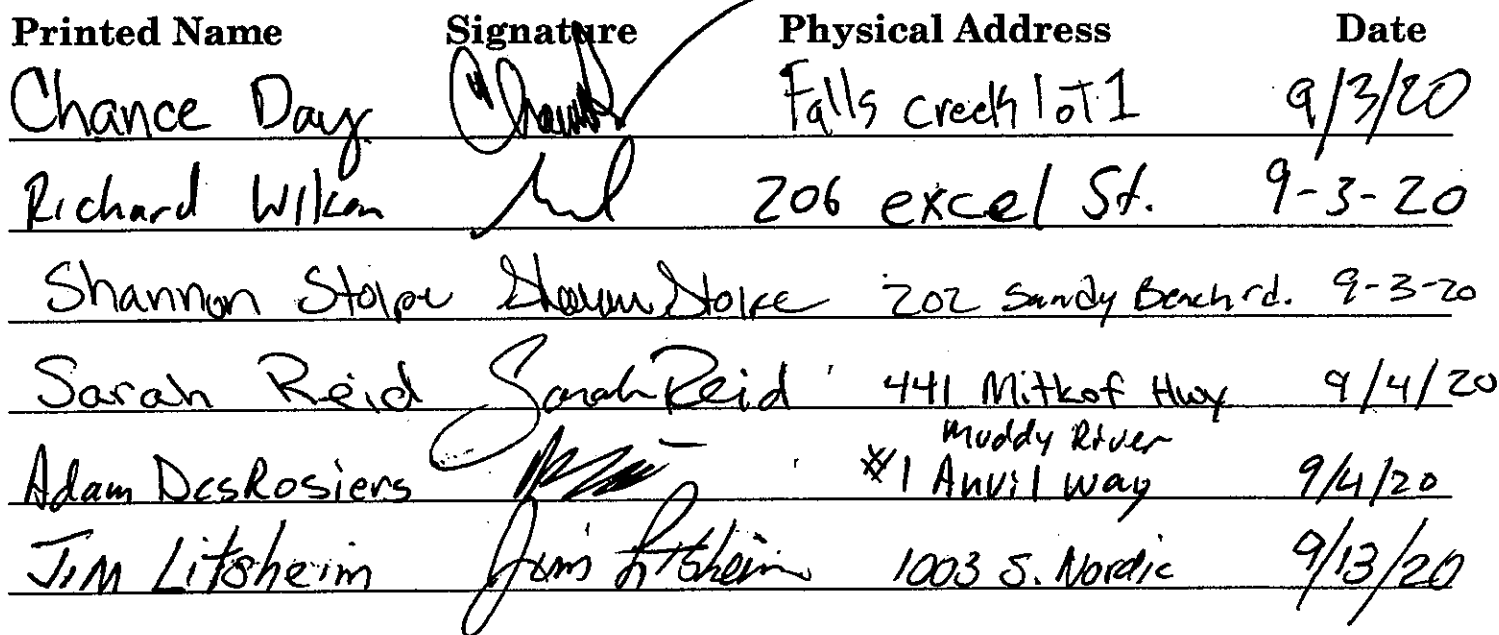 Printed Name Signature Physical Address Date
Chance Day Falls creek lot 1 9/3/20
Richard 206 excel St. 9-3-20
Shannon Stolpe 202 Sandy Beach rd. 9-3-20
Sarah Reid Sarah Reid 441 Mitkof Hwy 9/4/20
Muddy River
Adam DesRosiers #1 Anvil way 9/4/20
Jim Litsheim Jim Litsheim 1003 S. Nordic 9/13/20